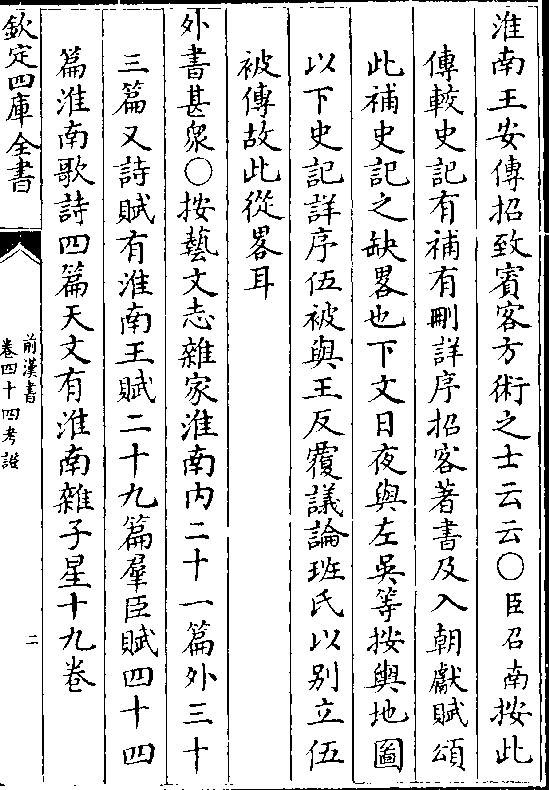 淮南王安傳招致賓客方術之士云云○臣召南按此
傳較史記有補有刪詳序招客著書及入朝獻賦頌
此補史記之缺畧也下文日夜與左吳等按輿地圖
以下史記詳序伍被與王反覆議論班氏以別立伍
被傳故此從畧耳
外書甚衆○按藝文志雜家淮南内二十一篇外三十
三篇又詩賦有淮南王賦二十九篇羣臣賦四十四
篇淮南歌詩四篇天文有淮南雜子星十九卷
欽定四庫全書
前漢書
卷四十四考證
二